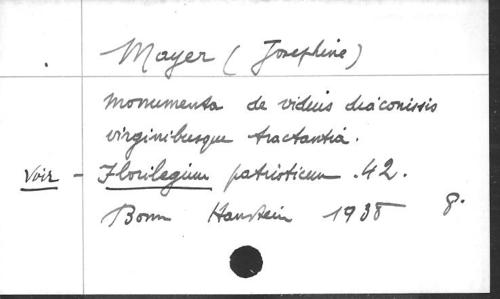 Mayer (Josephine)
Monumenta de viduis diaconissis
virginibusque tractantia.
Voir - Florilegium patristicum .42.
Bonn Hanstein 1938 8.